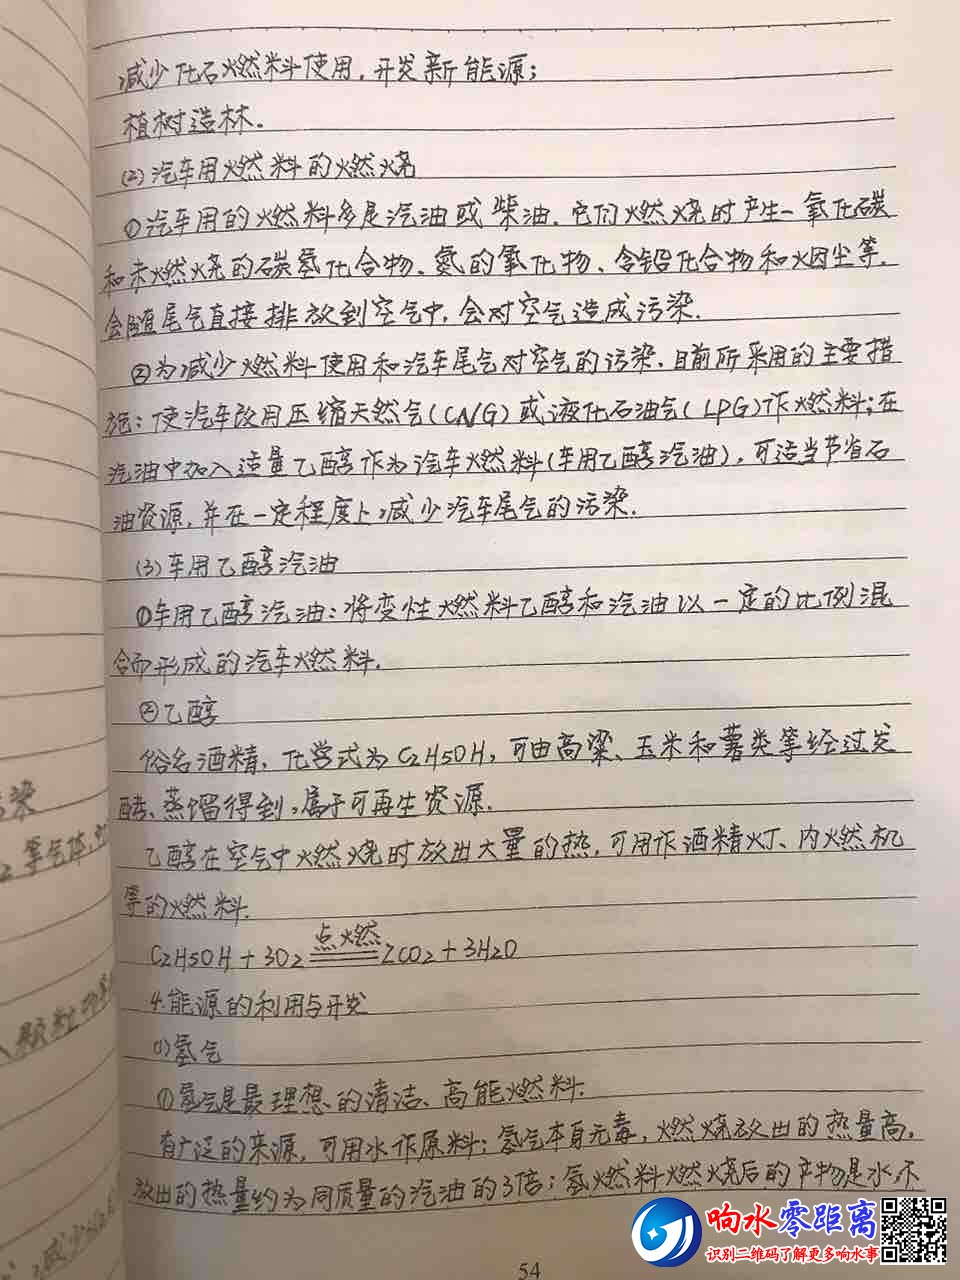 减少化石燃料使用，开发新能源；
植树造林．
(2)汽车用燃料的燃烧
①汽车用的燃料多是汽油或柴油．它们燃烧时产生一氧化碳
和未燃烧的碳氢化合物、氮的氧化物、含铅化合物和烟尘等．
会随尾气直接排放到空气中，会对空气造成污染．
②为减少燃料使用和汽车尾气对空气的污染，目前所采用的主要措
施：使汽车改用压缩天然气(CNG)或液化石油气(LPG)作燃料；在
汽油中加入适量乙醇作为汽车燃料(车用乙醇汽油)，可适当节省石
油资源，并在一定程度上减少汽车尾气的污染．
(3)车用乙醇汽油
①车用乙醇汽油：将变性燃料乙醇和汽油以一定的比例混
合而形成的汽车燃料．
②乙醇
俗名酒精，化学式为C2H5OH，可由高粱、玉米和薯类等经过发
酵、蒸馏得到，属于可再生资源．
乙醇在空气中燃烧时放出大量的热，可用作酒精灯、内燃机
等的燃料．
C2H5OH+3O2 点燃 2CO2+3H2O
4.能源的利用与开发
(1)氢气
①氢气是最理想的清洁、高能燃料．
有广泛的来源，可用水作原料；氢气本身无毒，燃烧放出的热量高，
放出的热量约为同质量的汽油的3倍；氢燃料燃烧后的产物是水，不
54
染
2等气体，
颗粒物
减少
响水零距离
识别二维码了解更多响水事